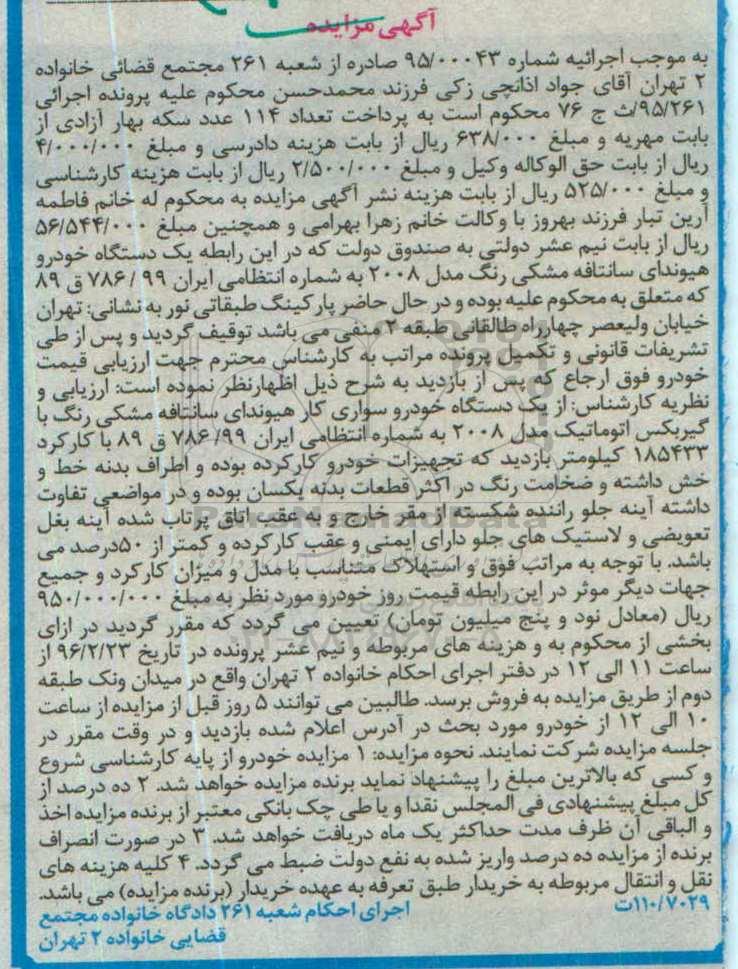 آگهی مزایده
به موجب اجرائیه شماره ۹۵/۰۰۰۴۳ صادره از شعبه ۲۶۱ مجتمع قضائی خانواده
۲ تهران آقای جواد اذانچی زکی فرزند محمدحسن محکوم علیه پرونده اجرائی
۹۵/۲۶۱/ث ج ۷۶ محکوم است به پرداخت تعداد ۱۱۴ عدد سکه بهار آزادی از
بابت مهریه و مبلغ ۶۳۸/۰۰۰ ریال از بابت هزینه دادرسی و مبلغ ۴/۰۰۰/۰۰۰
ریال از بابت حق الوکاله وکیل و مبلغ ۲/۵۰۰/۰۰۰ ریال از بابت هزینه کارشناسی
و مبلغ ۵۲۵/۰۰۰ ریال از بابت هزینه نشر آگهی مزایده به محکوم له خانم فاطمه
آرین تبار فرزند بهروز با وکالت خانم زهرا بهرامی و همچنین مبلغ ۵۶/۵۴۴/۰۰۰
ریال از بابت نیم عشر دولتی به صندوق دولت که در این رابطه یک دستگاه خودرو
هیوندای سانتافه مشکی رنگ مدل ۲۰۰۸ به شماره انتظامی ایران ۹۹ / ۷۸۶ ق ۸۹
که متعلق به محکوم علیه بوده و در حال حاضر پارکینگ طبقاتی نور به نشانی: تهران
خیابان ولیعصر چهارراه طالقانی طبقه ۲ منفی می باشد توقیف گردید و پس از طی
تشریفات قانونی و تکمیل پرونده مراتب به کارشناس محترم جهت ارزیابی قیمت
خودرو فوق ارجاع که پس از بازدید به شرح ذیل اظهارنظر نموده است: ارزیابی و
نظریه کارشناس: از یک دستگاه خودرو سواری کار هیوندای سانتافه مشکی رنگ با
گیربکس اتوماتیک مدل ۲۰۰۸ به شماره انتظامی ایران ۹۹/ ۷۸۶ ق ۸۹ با کارکرد
۱۸۵۴۳۳ کیلومتر بازدید که تجهیزات خودرو کارکرده بوده و اطراف بدنه خط و
خش داشته و ضخامت رنگ در اکثر قطعات بدنه یکسان بوده و در مواضعی تفاوت
داشته آینه جلو راننده شکسته از مقر خارج و به عقب اتاق پرتاب شده آینه بغل
تعویضی و لاستیک های جلو دارای ایمنی و عقب کارکرده و کمتر از ۵۰درصد می
باشد. با توجه به مراتب فوق و استهلاک متناسب با مدل و میزان کارکرد و جمیع
جهات دیگر موثر در این رابطه قیمت روز خودرو مورد نظر به مبلغ ۹۵۰/۰۰۰/۰۰۰
ریال (معادل نود و پنج میلیون تومان) تعیین می گردد که مقرر گردید در ازای
بخشی از محکوم به و هزینه های مربوطه و نیم عشر پرونده در تاریخ ۹۶/۲/۲۳ از
ساعت ۱۱ الی ۱۲ در دفتر اجرای احکام خانواده ۲ تهران واقع در میدان ونک طبقه
دوم از طریق مزایده به فروش برسد. طالبین می توانند ۵ روز قبل از مزایده از ساعت
۱۰ الی ۱۲ از خودرو مورد بحث در آدرس اعلام شده بازدید و در وقت مقرر در
جلسه مزایده شرکت نمایند. نحوه مزایده: ۱ مزایده خودرو از پایه کارشناسی شروع
و کسی که بالاترین مبلغ را پیشنهاد نماید برنده مزایده خواهد شد. ۲ ده درصد از
کل مبلغ پیشنهادی فی المجلس نقدا و یا طی چک بانکی معتبر از برنده مزایده اخذ
و الباقی آن ظرف مدت حداکثر یک ماه دریافت خواهد شد. ۳ در صورت انصراف
برنده از مزایده ده درصد واریز شده به نفع دولت ضبط می گردد. ۴ کلیه هزینه های
نقل و انتقال مربوطه به خریدار طبق تعرفه به عهده خریدار (برنده مزایده) می باشد.
۱۱۰/۷۰۲۹ت
اجرای احکام شعبه ۲۶۱ دادگاه خانواده مجتمع
قضایی خانواده ۲ تهران
ParsNamadData